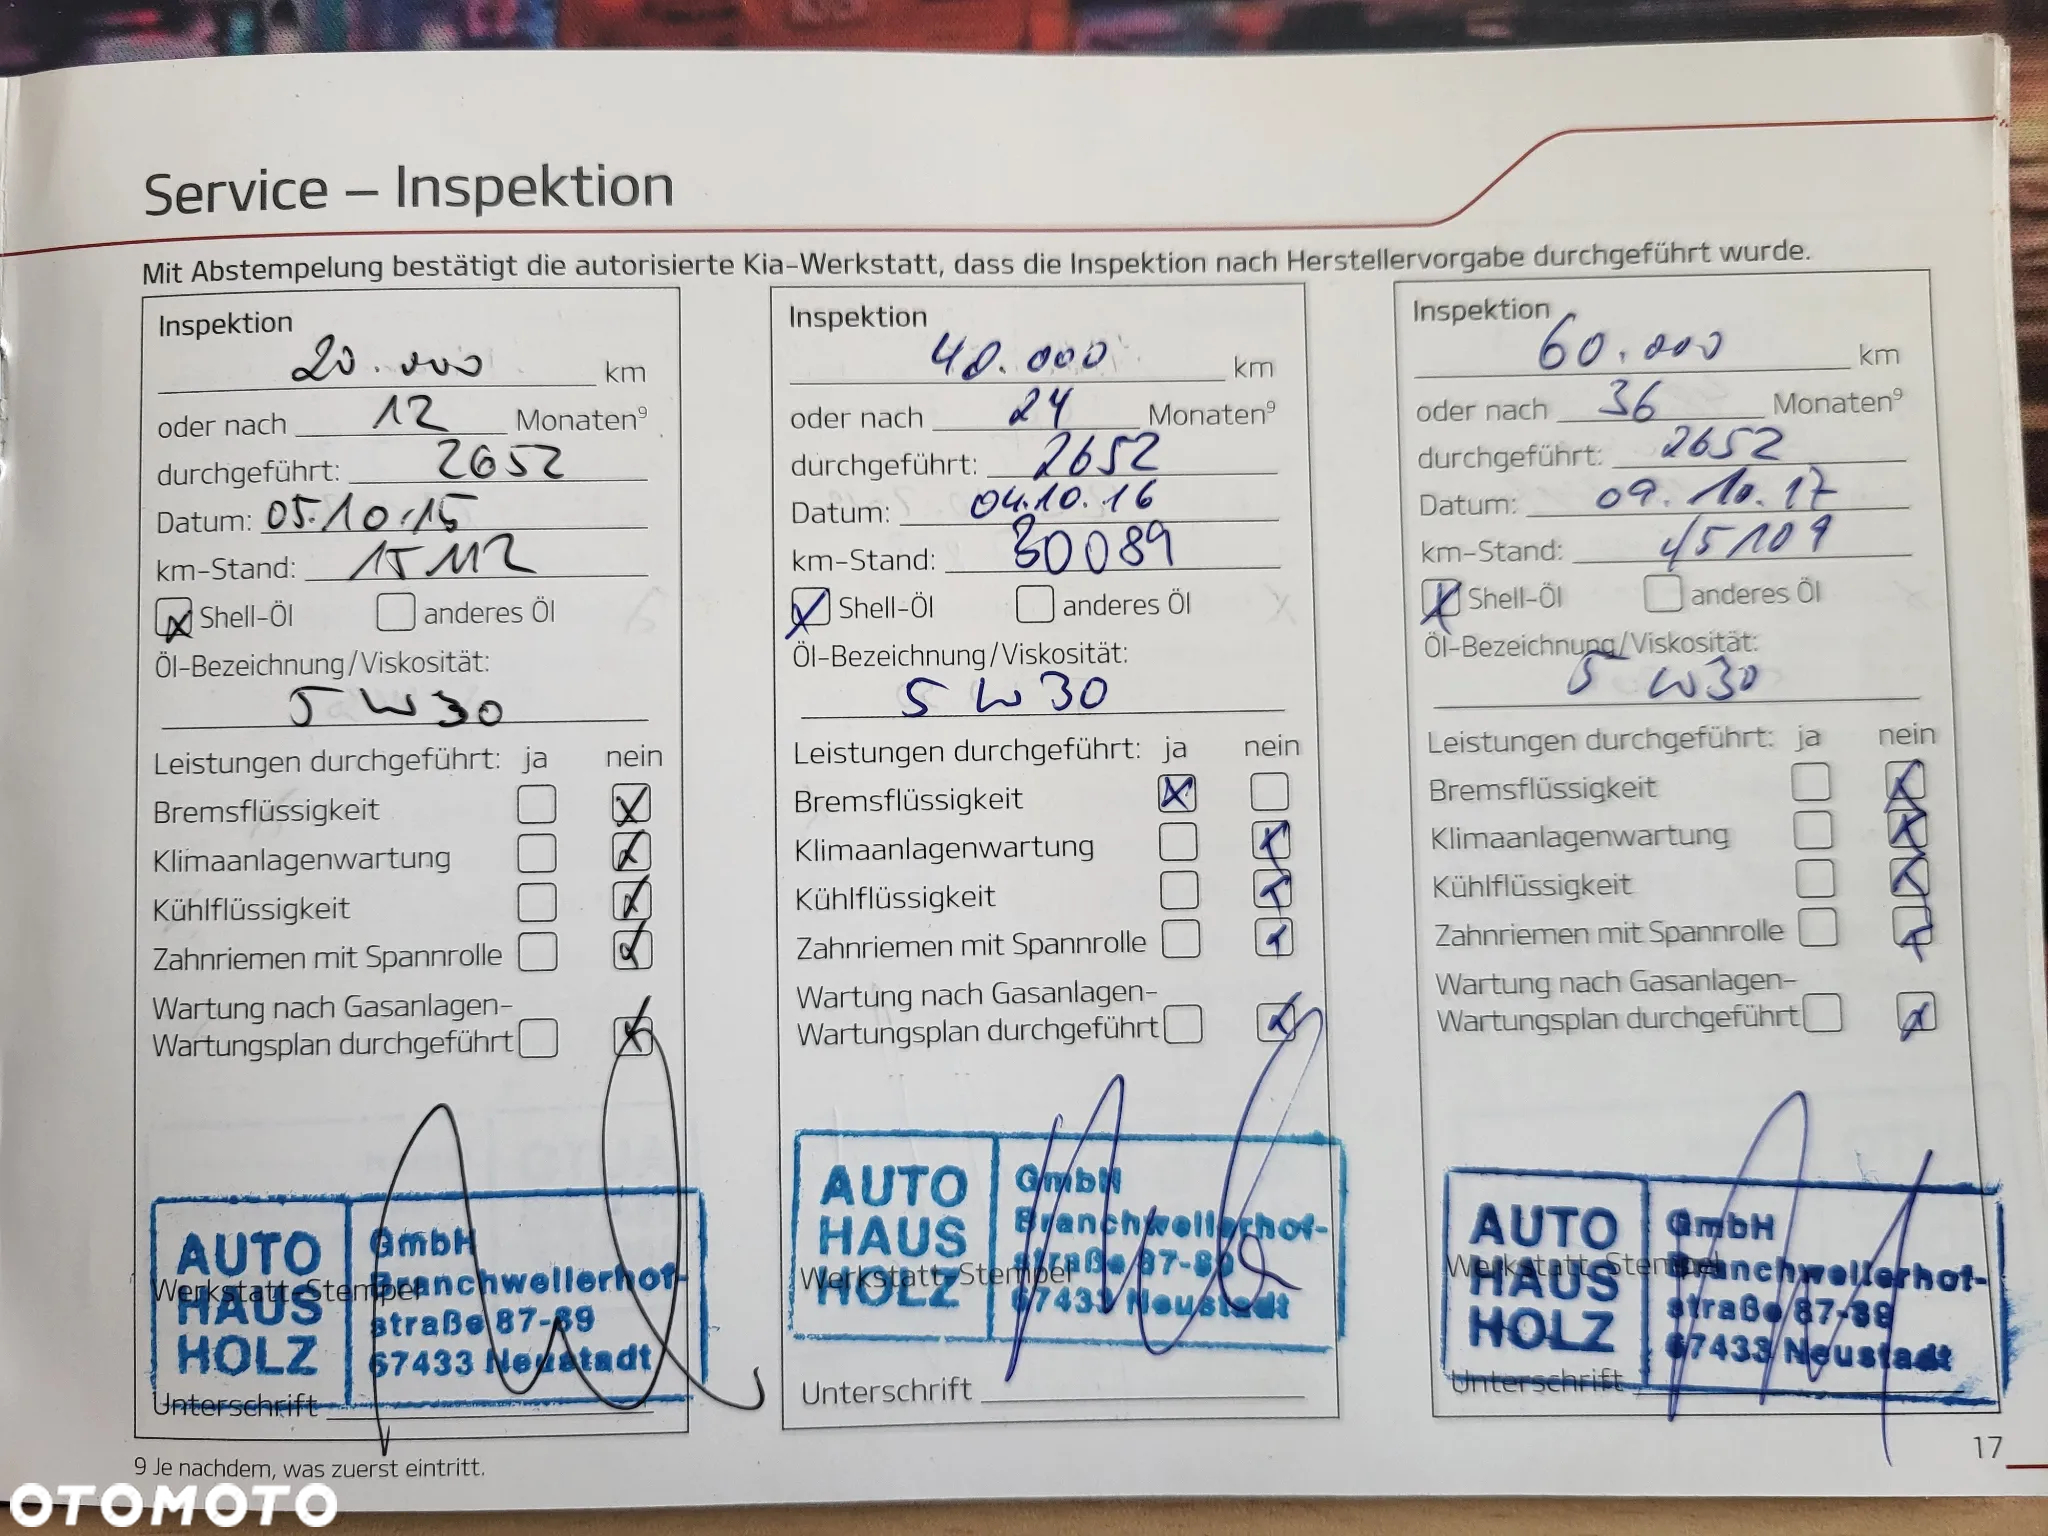 Service – Inspektion
Mit Abstempelung bestätigt die autorisierte Kia-Werkstatt, dass die Inspektion nach Herstellervorgabe durchgeführt wurde.
Inspektion
20.000 km
oder nach 12 Monaten⁹
durchgeführt: 2652
Datum: 05.10.15
km-Stand: 15112
x Shell-Öl anderes Öl
Öl-Bezeichnung/Viskosität:
5 W 30
Leistungen durchgeführt: ja nein
Bremsflüssigkeit x
Klimaanlagenwartung x
Kühlflüssigkeit x
Zahnriemen mit Spannrolle x
Wartung nach Gasanlagen-
Wartungsplan durchgeführt x
AUTO HAUS HOLZ
GmbH
Branchwellerhof-
straße 87-89
67433 Neustadt
Werkstatt-Stempel
Unterschrift
Inspektion
40.000 km
oder nach 24 Monaten⁹
durchgeführt: 2652
Datum: 04.10.16
km-Stand: 30089
x Shell-Öl anderes Öl
Öl-Bezeichnung/Viskosität:
5 W 30
Leistungen durchgeführt: ja nein
Bremsflüssigkeit x
Klimaanlagenwartung x
Kühlflüssigkeit x
Zahnriemen mit Spannrolle x
Wartung nach Gasanlagen-
Wartungsplan durchgeführt x
AUTO HAUS HOLZ
GmbH
Branchwellerhof-
straße 87-89
67433 Neustadt
Werkstatt-Stempel
Unterschrift
Inspektion
60.000 km
oder nach 36 Monaten⁹
durchgeführt: 2652
Datum: 09.10.17
km-Stand: 45109
x Shell-Öl anderes Öl
Öl-Bezeichnung/Viskosität:
5 W 30
Leistungen durchgeführt: ja nein
Bremsflüssigkeit x
Klimaanlagenwartung x
Kühlflüssigkeit x
Zahnriemen mit Spannrolle x
Wartung nach Gasanlagen-
Wartungsplan durchgeführt x
AUTO HAUS HOLZ
GmbH
Branchwellerhof-
straße 87-89
67433 Neustadt
Werkstatt-Stempel
Unterschrift
9 Je nachdem, was zuerst eintritt.
17
OTOMOTO